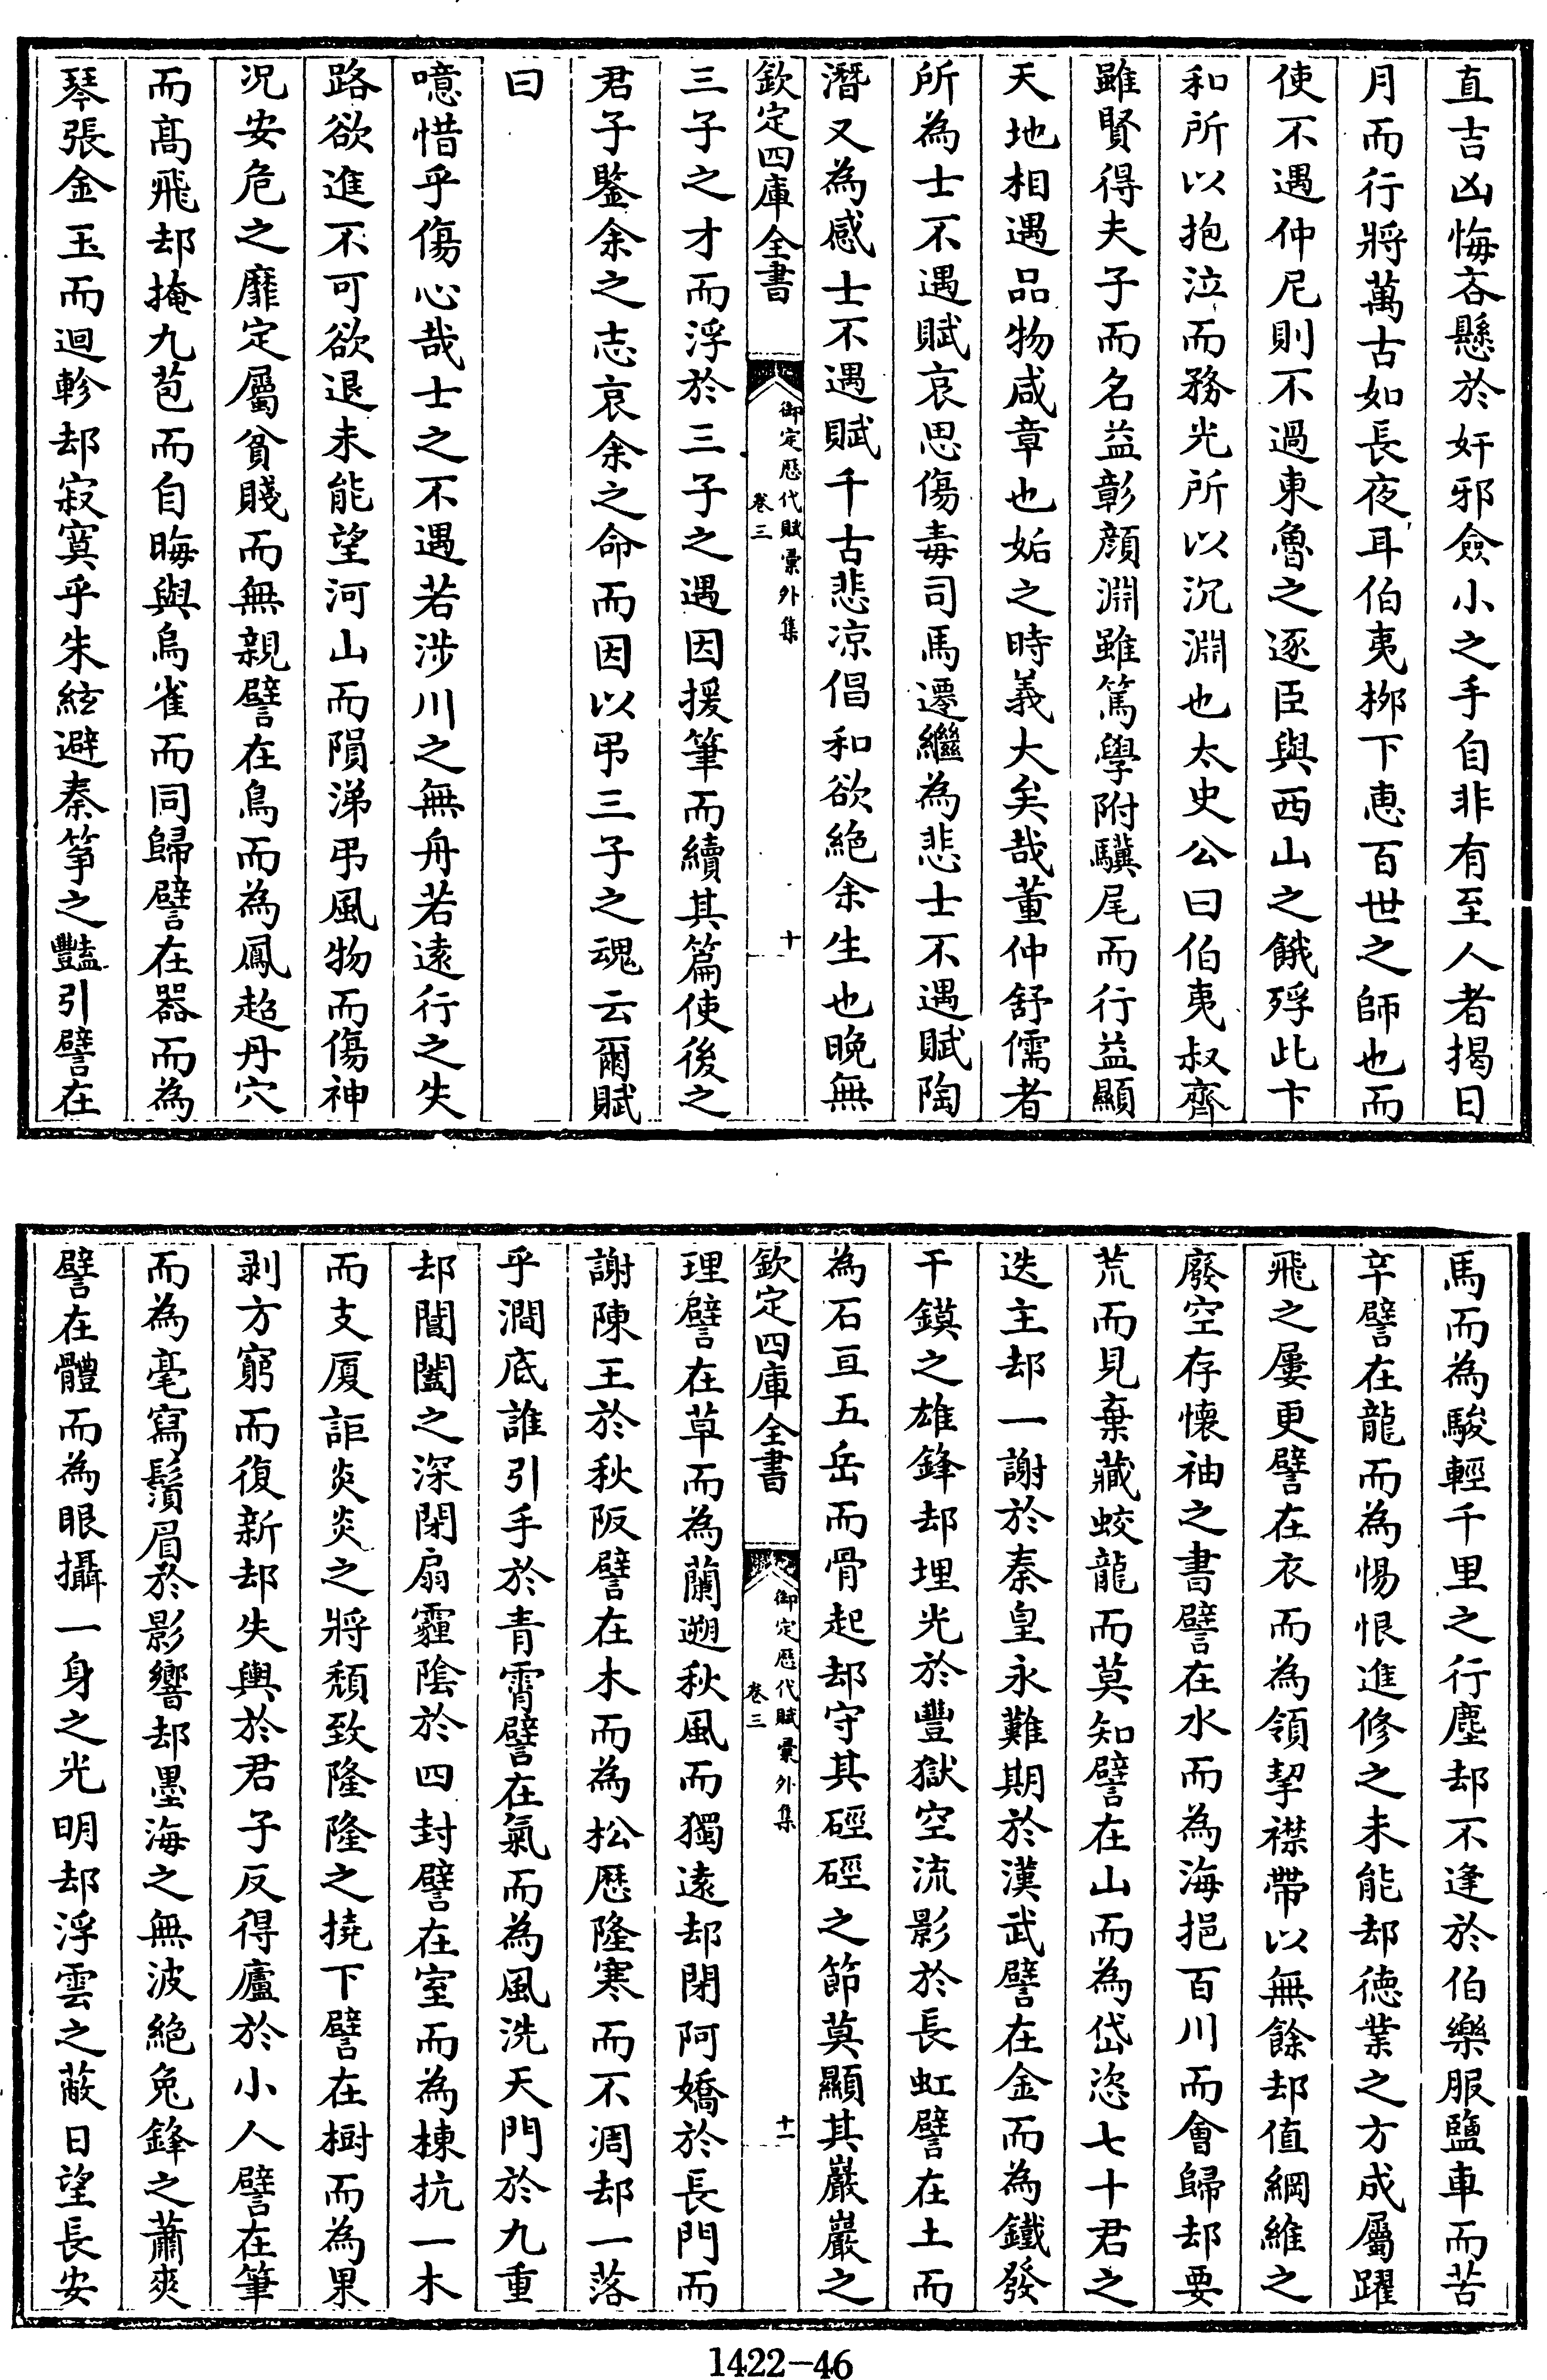 直吉凶悔吝懸於奸邪險小之手自非有至人者揭日
月而行將萬古如長夜耳伯夷栁下恵百世之師也而
使不遇仲尼則不過東魯之逐臣與西山之餓殍此卞
和所以抱泣而務光所以沉淵也太史公曰伯夷叔齊
雖賢得夫子而名益彰顔淵雖篤學附驥尾而行益顯
天地相遇品物咸章也姤之時義大矣哉董仲舒儒者
所為士不遇賦哀思傷毒司馬遷繼為悲士不遇賦陶
潛又為感士不遇賦千古悲凉倡和欲絶余生也晚無
欽定四庫全書
御定歴代賦彙外集
卷三
十
三子之才而浮於三子之遇因援筆而續其篇使後之
君子鑒余之志哀余之命而因以弔三子之魂云爾賦
曰
噫惜乎傷心哉士之不遇若涉川之無舟若逺行之失
路欲進不可欲退未能望河山而隕涕弔風物而傷神
况安危之靡定屬貧賤而無親譬在鳥而為鳳超丹穴
而髙飛却掩九苞而自晦與烏雀而同歸譬在器而為
琴張金玉而迴軫却寂寞乎朱絃避秦筝之豔引譬在
馬而為駿輕千里之行塵却不逢於伯樂服鹽車而苦
辛譬在龍而為惕恨進修之未能却徳業之方成屬躍
飛之屢更譬在衣而為領挈襟帶以無餘却值綱維之
廢空存懐袖之書譬在水而為海挹百川而㑹歸却要
荒而見棄藏蛟龍而莫知譬在山而為岱恣七十君之
迭主却一謝於秦皇永難期於漢武譬在金而為鐵發
干鏌之雄鋒却埋光於豐獄空流影於長虹譬在土而
為石亘五岳而骨起却守其硜硜之節莫顯其巖巖之
欽定四庫全書
御定歴代賦彙外集
卷三
十一
理譬在草而為蘭遡秋風而獨逺却閉阿嬌於長門而
謝陳王於秋阪譬在木而為松歴隆寒而不凋却一落
乎澗底誰引手於青霄譬在氣而為風洗天門於九重
却閶闔之深閉扇霾陰於四封譬在室而為棟抗一木
而支厦詎炎炎之將頽致隆隆之撓下譬在樹而為果
剥方窮而復新却失輿於君子反得廬於小人譬在筆
而為毫寫鬚眉於影響却墨海之無波絶兔鋒之蕭爽
譬在體而為眼攝一身之光明却浮雲之蔽日望長安
1422-46